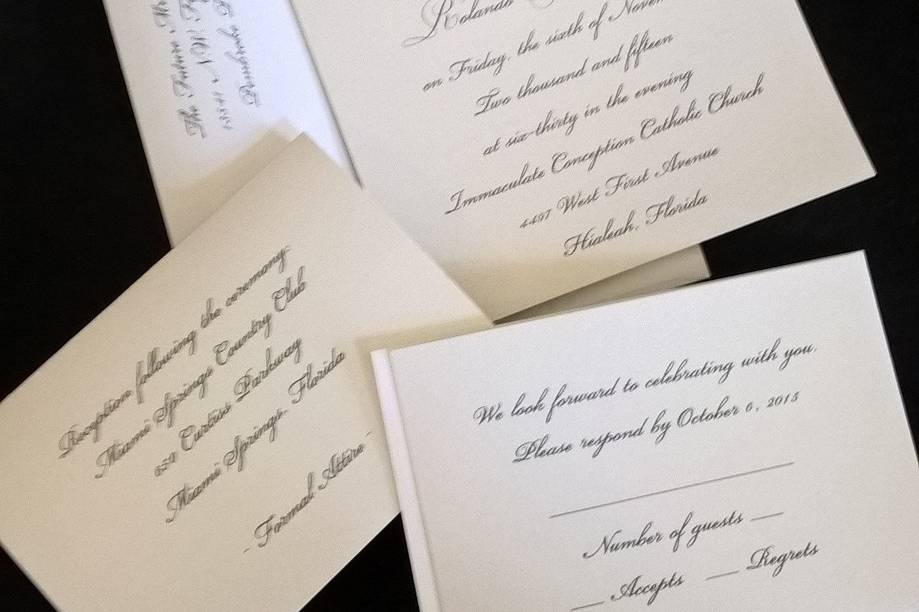 Rolando
on Friday, the sixth of Novem
Two thousand and fifteen
at six-thirty in the evening
Immaculate Conception Catholic Church
4497 West First Avenue
Hialeah, Florida
Reception following the ceremony
Miami Springs Country Club
650 Curtiss Parkway
Miami Springs, Florida
- Formal Attire -
We look forward to celebrating with you.
Please respond by October 6, 2015
Number of guests
Accepts Regrets